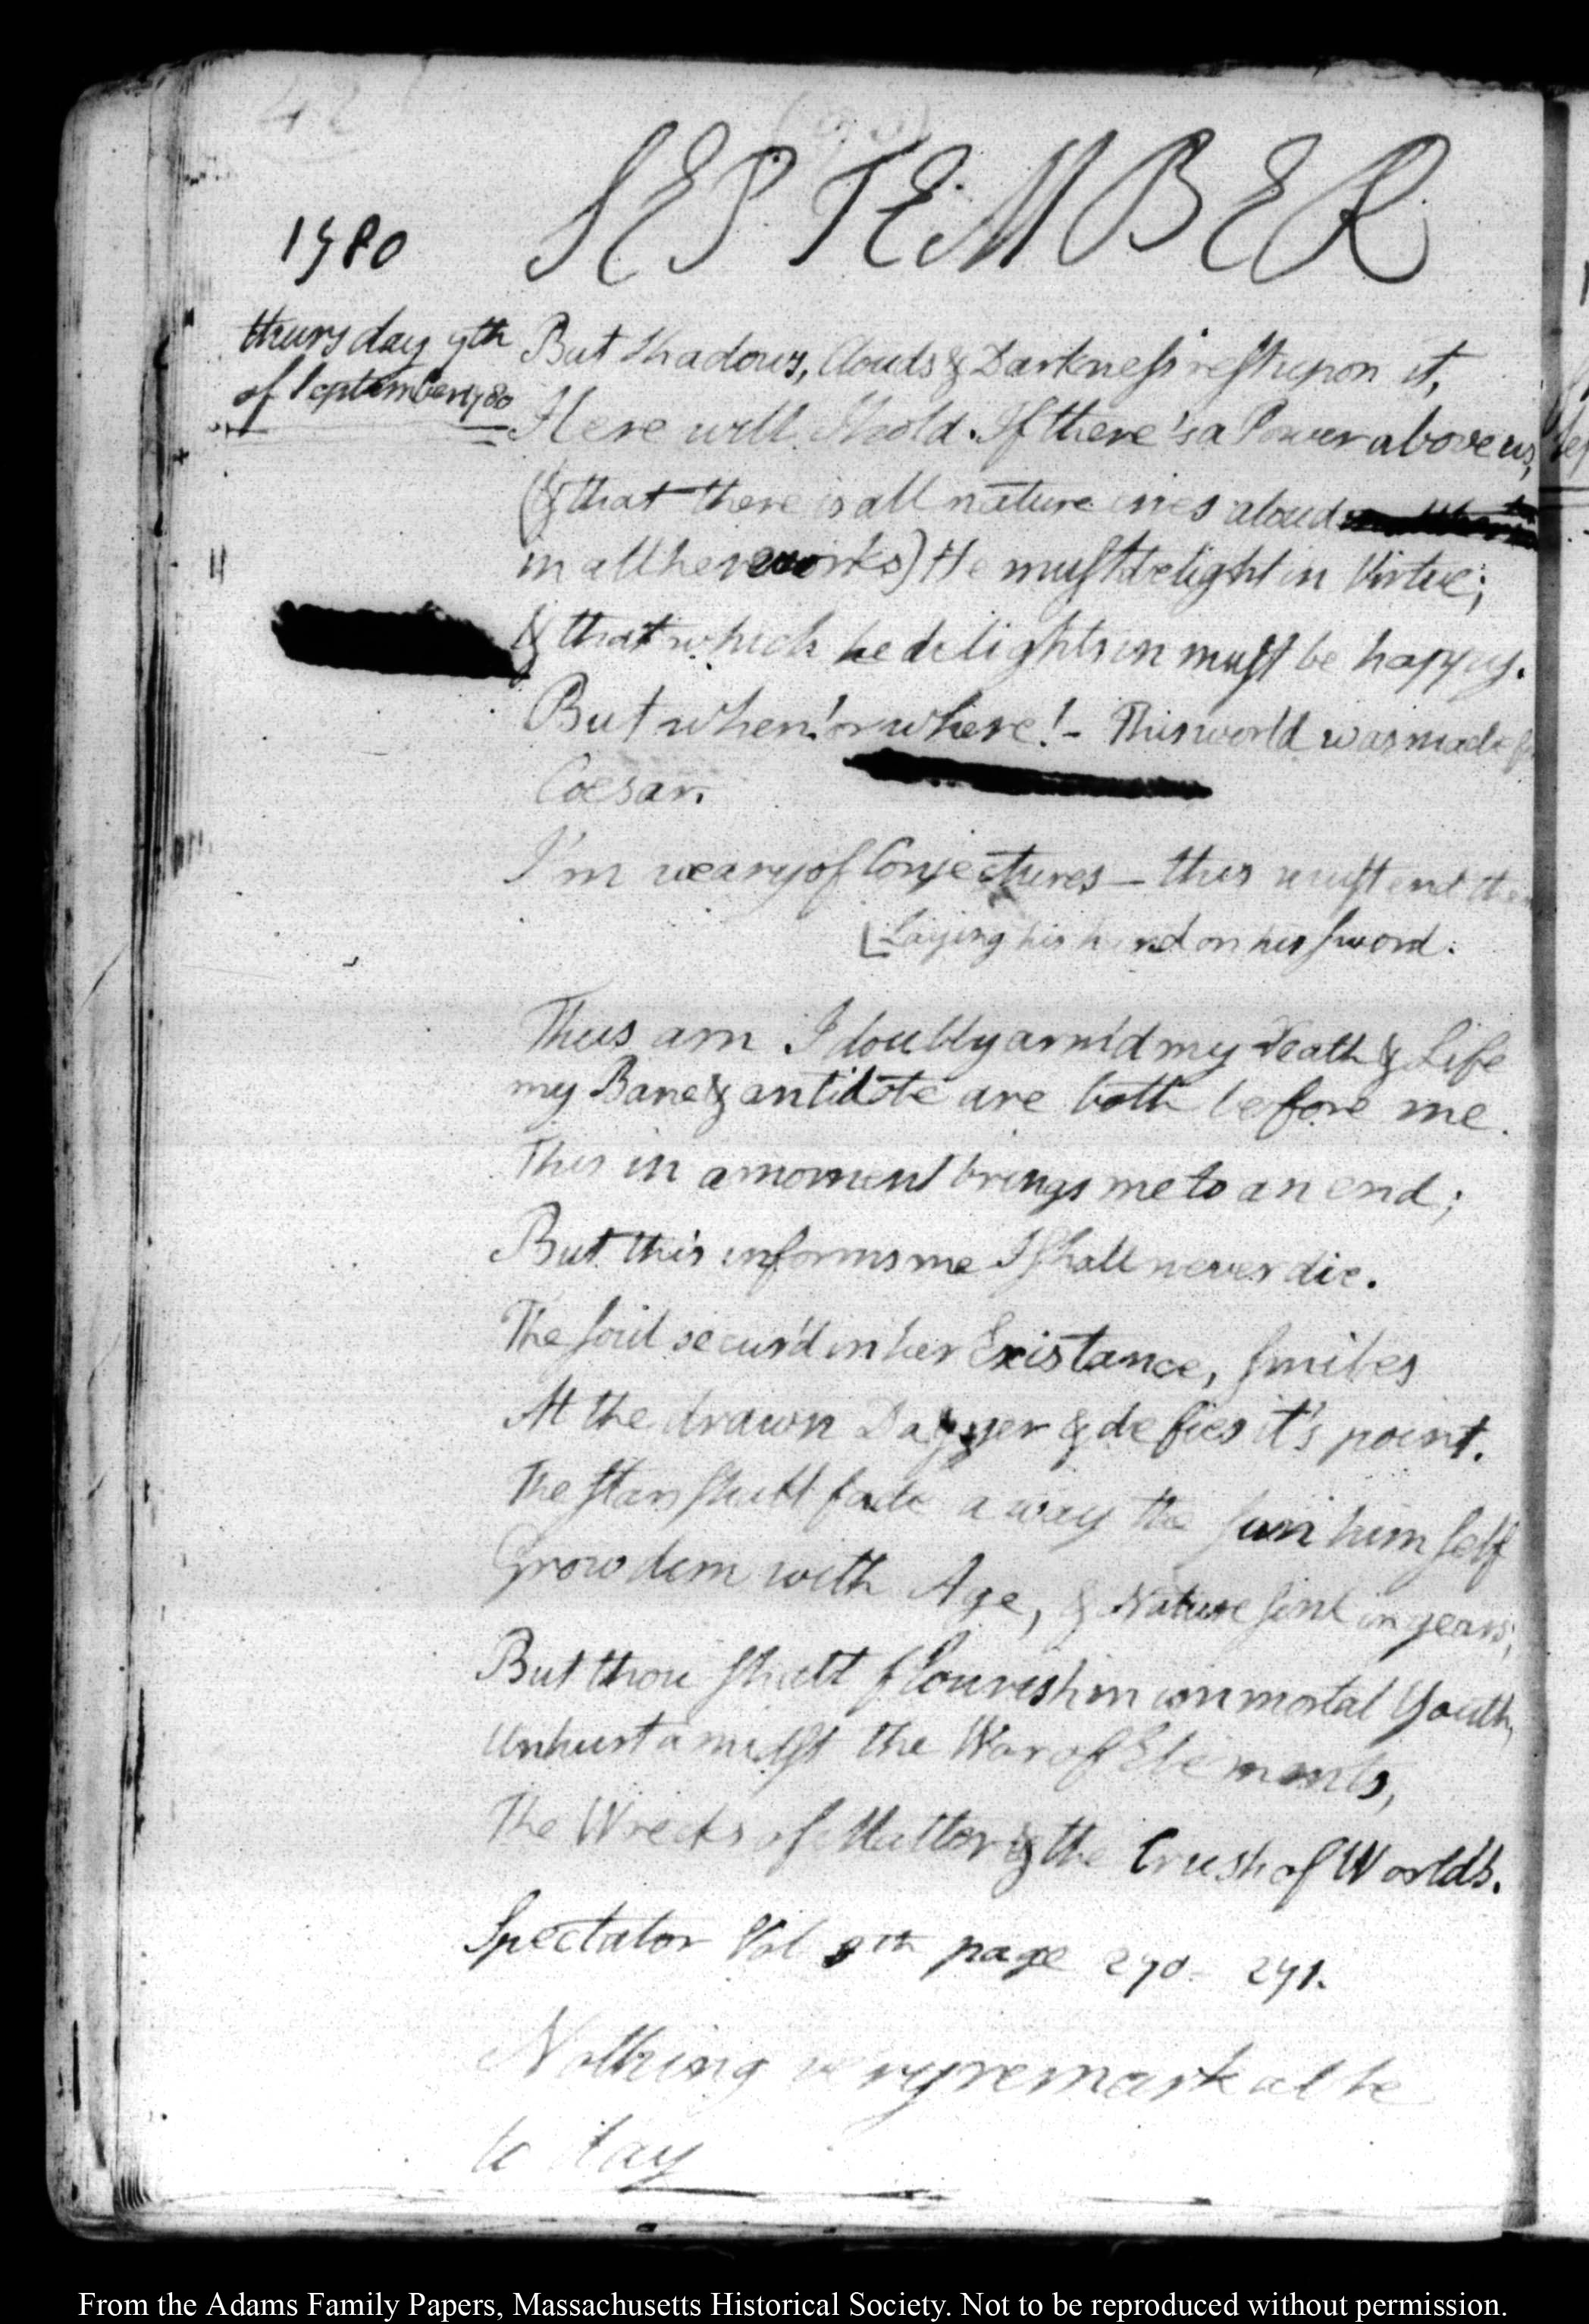 SEPTEMBER
1780
thursday 7th
of September 1780
But Shadows, Clouds & Darkness rest upon it,
Here will I hold. If there's a Power above us,
(& that there is all nature cries aloud
in all her works) He must delight in Virtue;
& that which he delights in must be happy.
But when! or where! - This world was made
Coesar.
I'm weary of Conjectures — this must end
[Laying his hand on his sword.
Thus am I doubly arm'd my Death & Life
my Bane & antidote are both before me.
This in a moment brings me to an end;
But this informs me I shall never die.
The soul secur'd in her Existance, smiles
At the drawn Dagger & defies it's point.
The stars shall fade away the sun himself
Grow dim with Age, & Nature sink in years;
But thou shalt flourish in immortal Youth,
Unhurt amidst the War of Elements,
The Wrecks of Matter & the Crush of Worlds.
Spectator Vol 8th page 270. 271.
Nothing very remarkable
to day
From the Adams Family Papers, Massachusetts Historical Society. Not to be reproduced without permission.